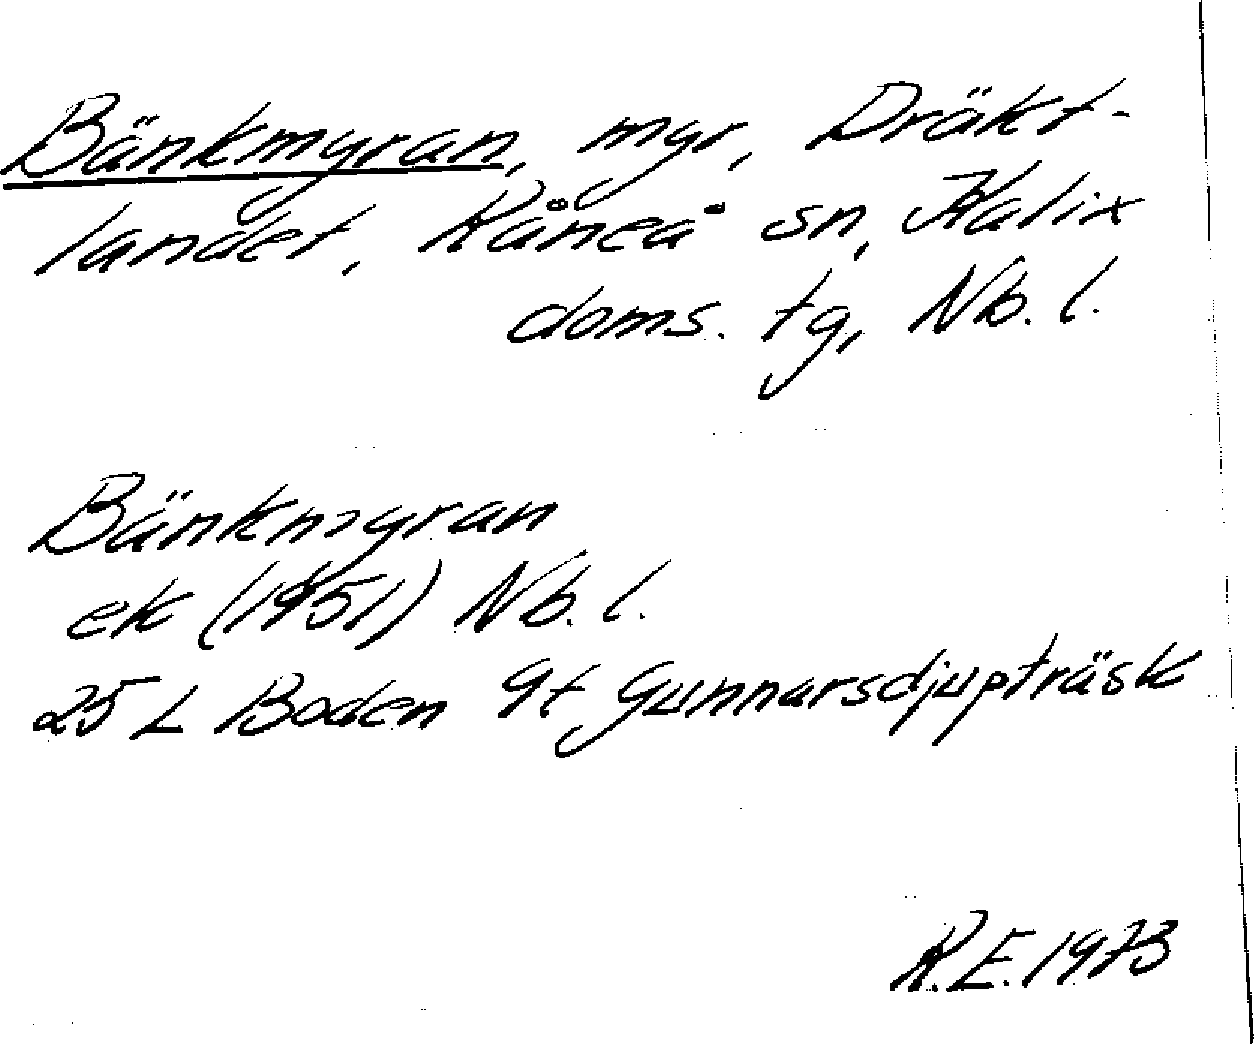 Bänkmyran, myr, Dräkt-
landet, Råneå sn, Kalix
doms. tg, Nb. l.
Bänkmyran
ek (1951) Nb. l.
25 L Boden 9t Gunnarsdjupträsk
R.E. 1973